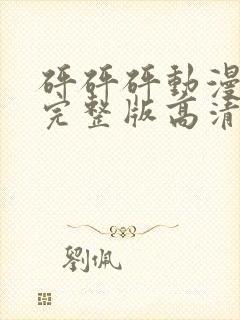 砰砰砰動漫
完整版高清
劉佩